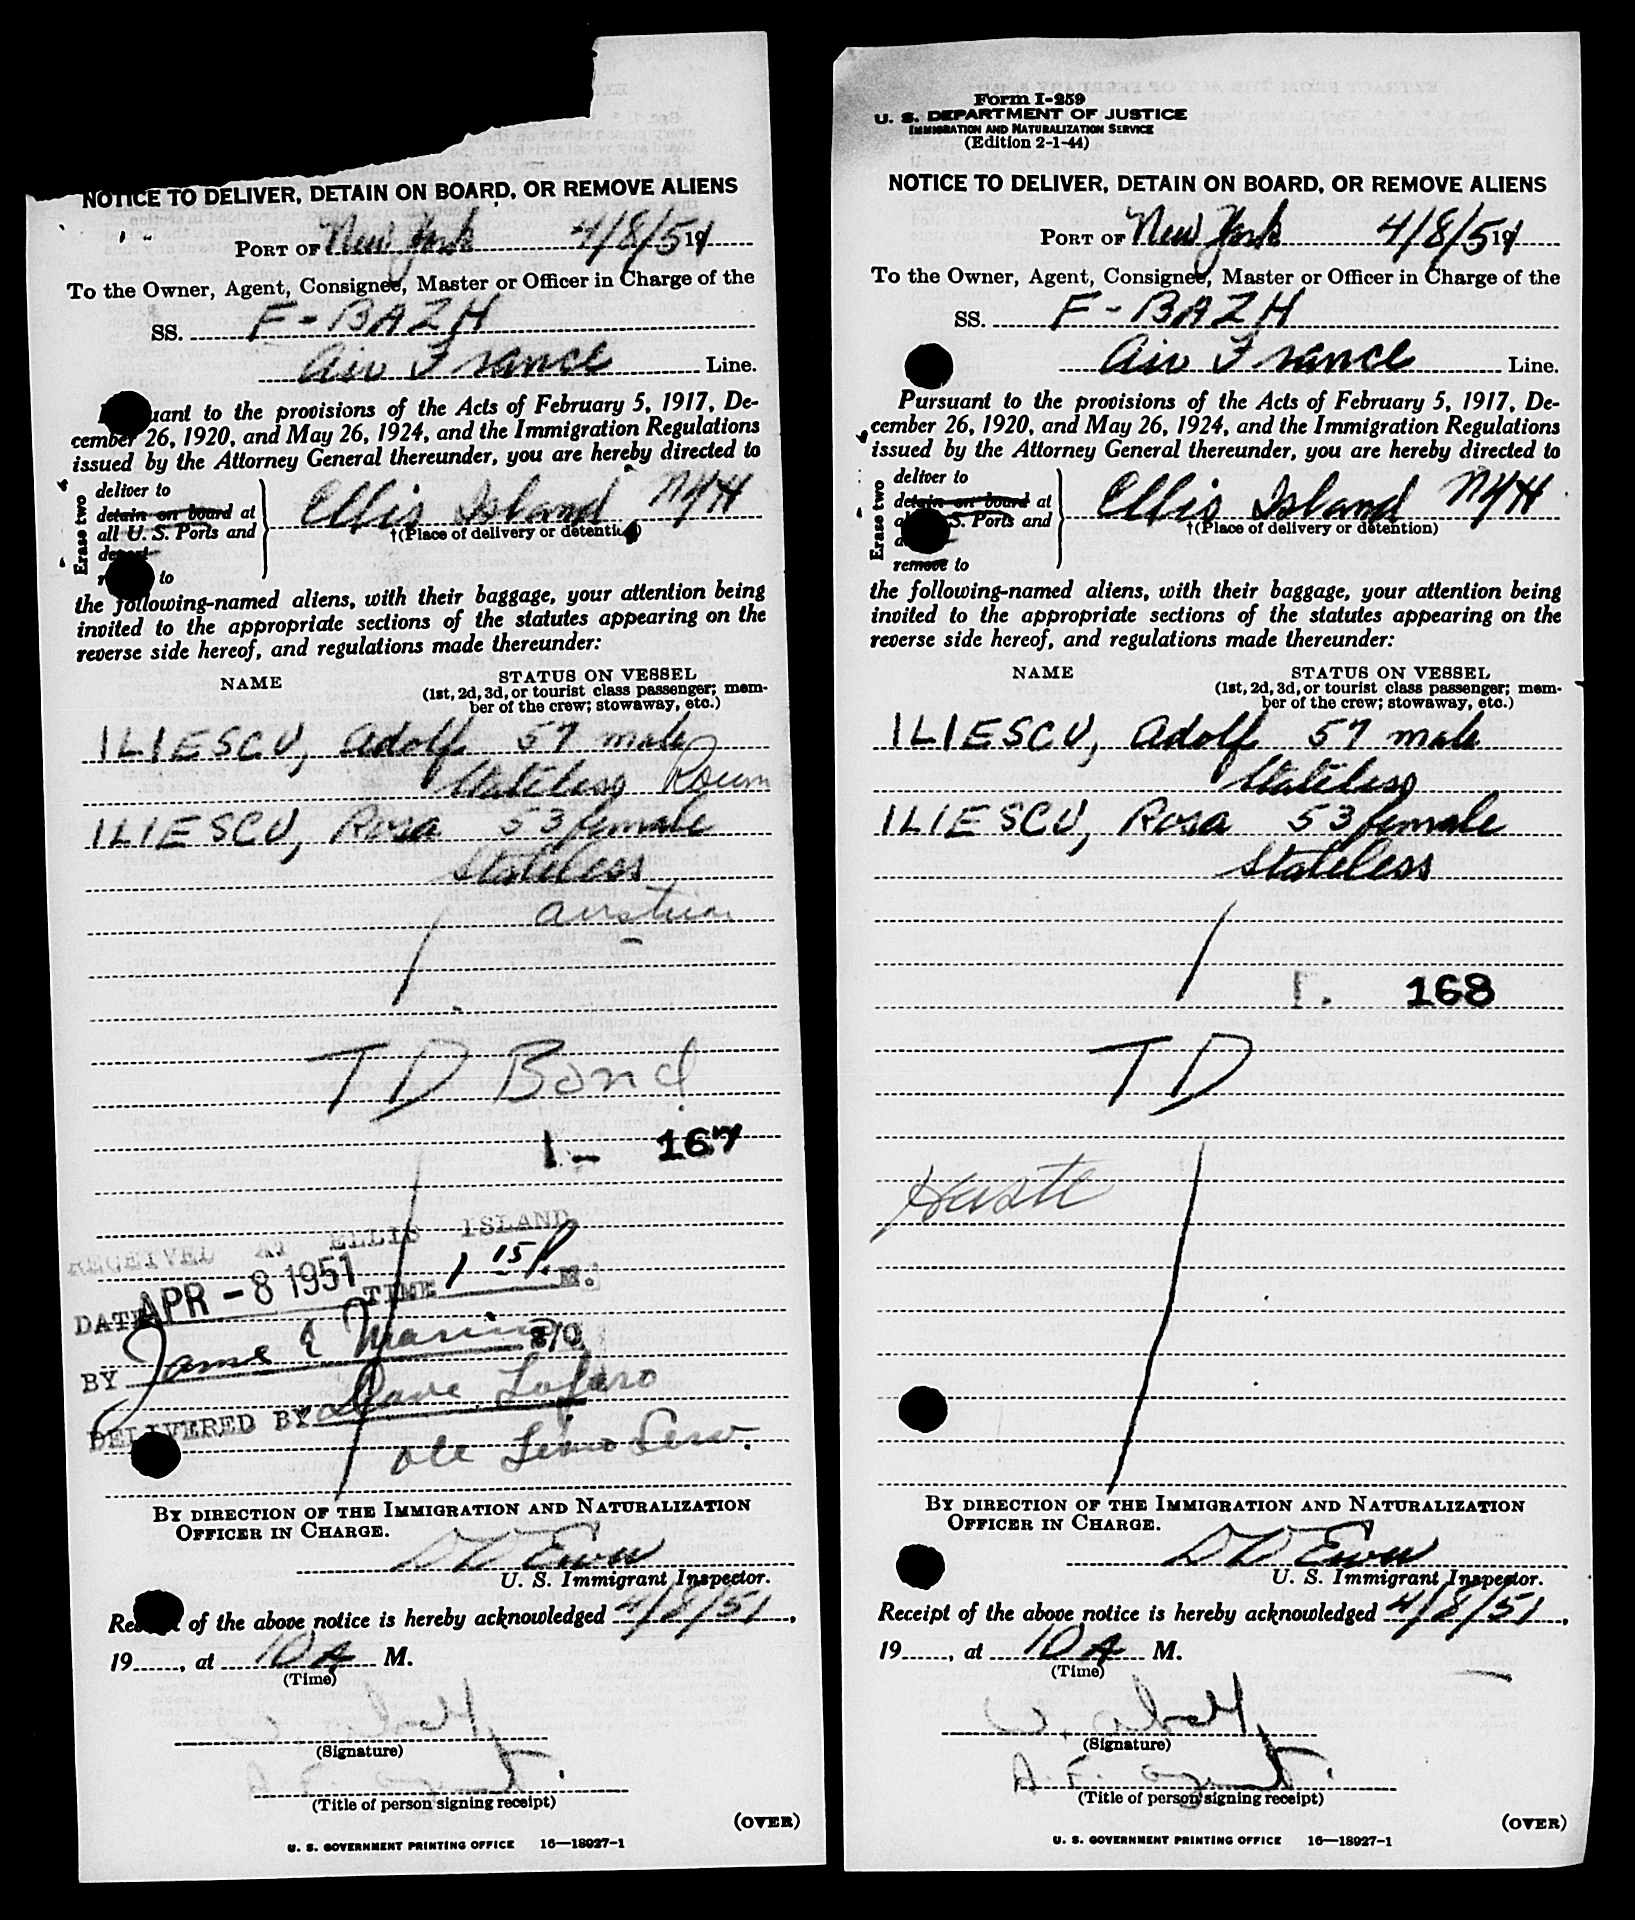 NOTICE TO DELIVER, DETAIN ON BOARD, OR REMOVE ALIENS
PORT OF New York 4/8/51 19
To the Owner, Agent, Consignee, Master or Officer in Charge of the
SS. F-BAZH
Air France Line.
uant to the provisions of the Acts of February 5, 1917, De-
cember 26, 1920, and May 26, 1924, and the Immigration Regulations
issued by the Attorney General thereunder, you are hereby directed to
Erase two
deliver to
detain on board at
all U. S. Ports and
depart
r to
Ellis Island NYH
†(Place of delivery or detention)
the following-named aliens, with their baggage, your attention being
invited to the appropriate sections of the statutes appearing on the
reverse side hereof, and regulations made thereunder:
NAME
STATUS ON VESSEL
(1st, 2d, 3d, or tourist class passenger; mem-
ber of the crew; stowaway, etc.)
ILIESCU, Adolf 57 male
Stateless Roum
ILIESCU, Rosa 53 female
Stateless
Austrian
T D Bond
1 - 167
RECEIVED AT ELLIS ISLAND
DATE APR - 8 1951 TIME 1 15 P. M.
BY James E Marino
DELIVERED BY Dave Lofaro
Limo Serv.
BY DIRECTION OF THE IMMIGRATION AND NATURALIZATION
OFFICER IN CHARGE.
U. S. Immigrant Inspector.
Receipt of the above notice is hereby acknowledged 4/8/51,
19, at 10 A M.
(Time)
(Signature)
A. F. Agent.
(Title of person signing receipt)
(OVER)
U. S. GOVERNMENT PRINTING OFFICE 16—18927-1
Form I-259
U. S. DEPARTMENT OF JUSTICE
IMMIGRATION AND NATURALIZATION SERVICE
(Edition 2-1-44)
NOTICE TO DELIVER, DETAIN ON BOARD, OR REMOVE ALIENS
PORT OF New York 4/8/51 19
To the Owner, Agent, Consignee, Master or Officer in Charge of the
SS. F-BAZH
Air France Line.
Pursuant to the provisions of the Acts of February 5, 1917, De-
cember 26, 1920, and May 26, 1924, and the Immigration Regulations
issued by the Attorney General thereunder, you are hereby directed to
Erase two
deliver to
detain on board at
a S. Ports and
d
remove to
Ellis Island NYH
†(Place of delivery or detention)
the following-named aliens, with their baggage, your attention being
invited to the appropriate sections of the statutes appearing on the
reverse side hereof, and regulations made thereunder:
NAME
STATUS ON VESSEL
(1st, 2d, 3d, or tourist class passenger; mem-
ber of the crew; stowaway, etc.)
ILIESCU, Adolf 57 male
Stateless
ILIESCU, Rosa 53 female
Stateless
168
T D
BY DIRECTION OF THE IMMIGRATION AND NATURALIZATION
OFFICER IN CHARGE.
U. S. Immigrant Inspector.
Receipt of the above notice is hereby acknowledged 4/8/51,
19, at 10 A M.
(Time)
(Signature)
A. F. Agent.
(Title of person signing receipt)
(OVER)
U. S. GOVERNMENT PRINTING OFFICE 16—18927-1